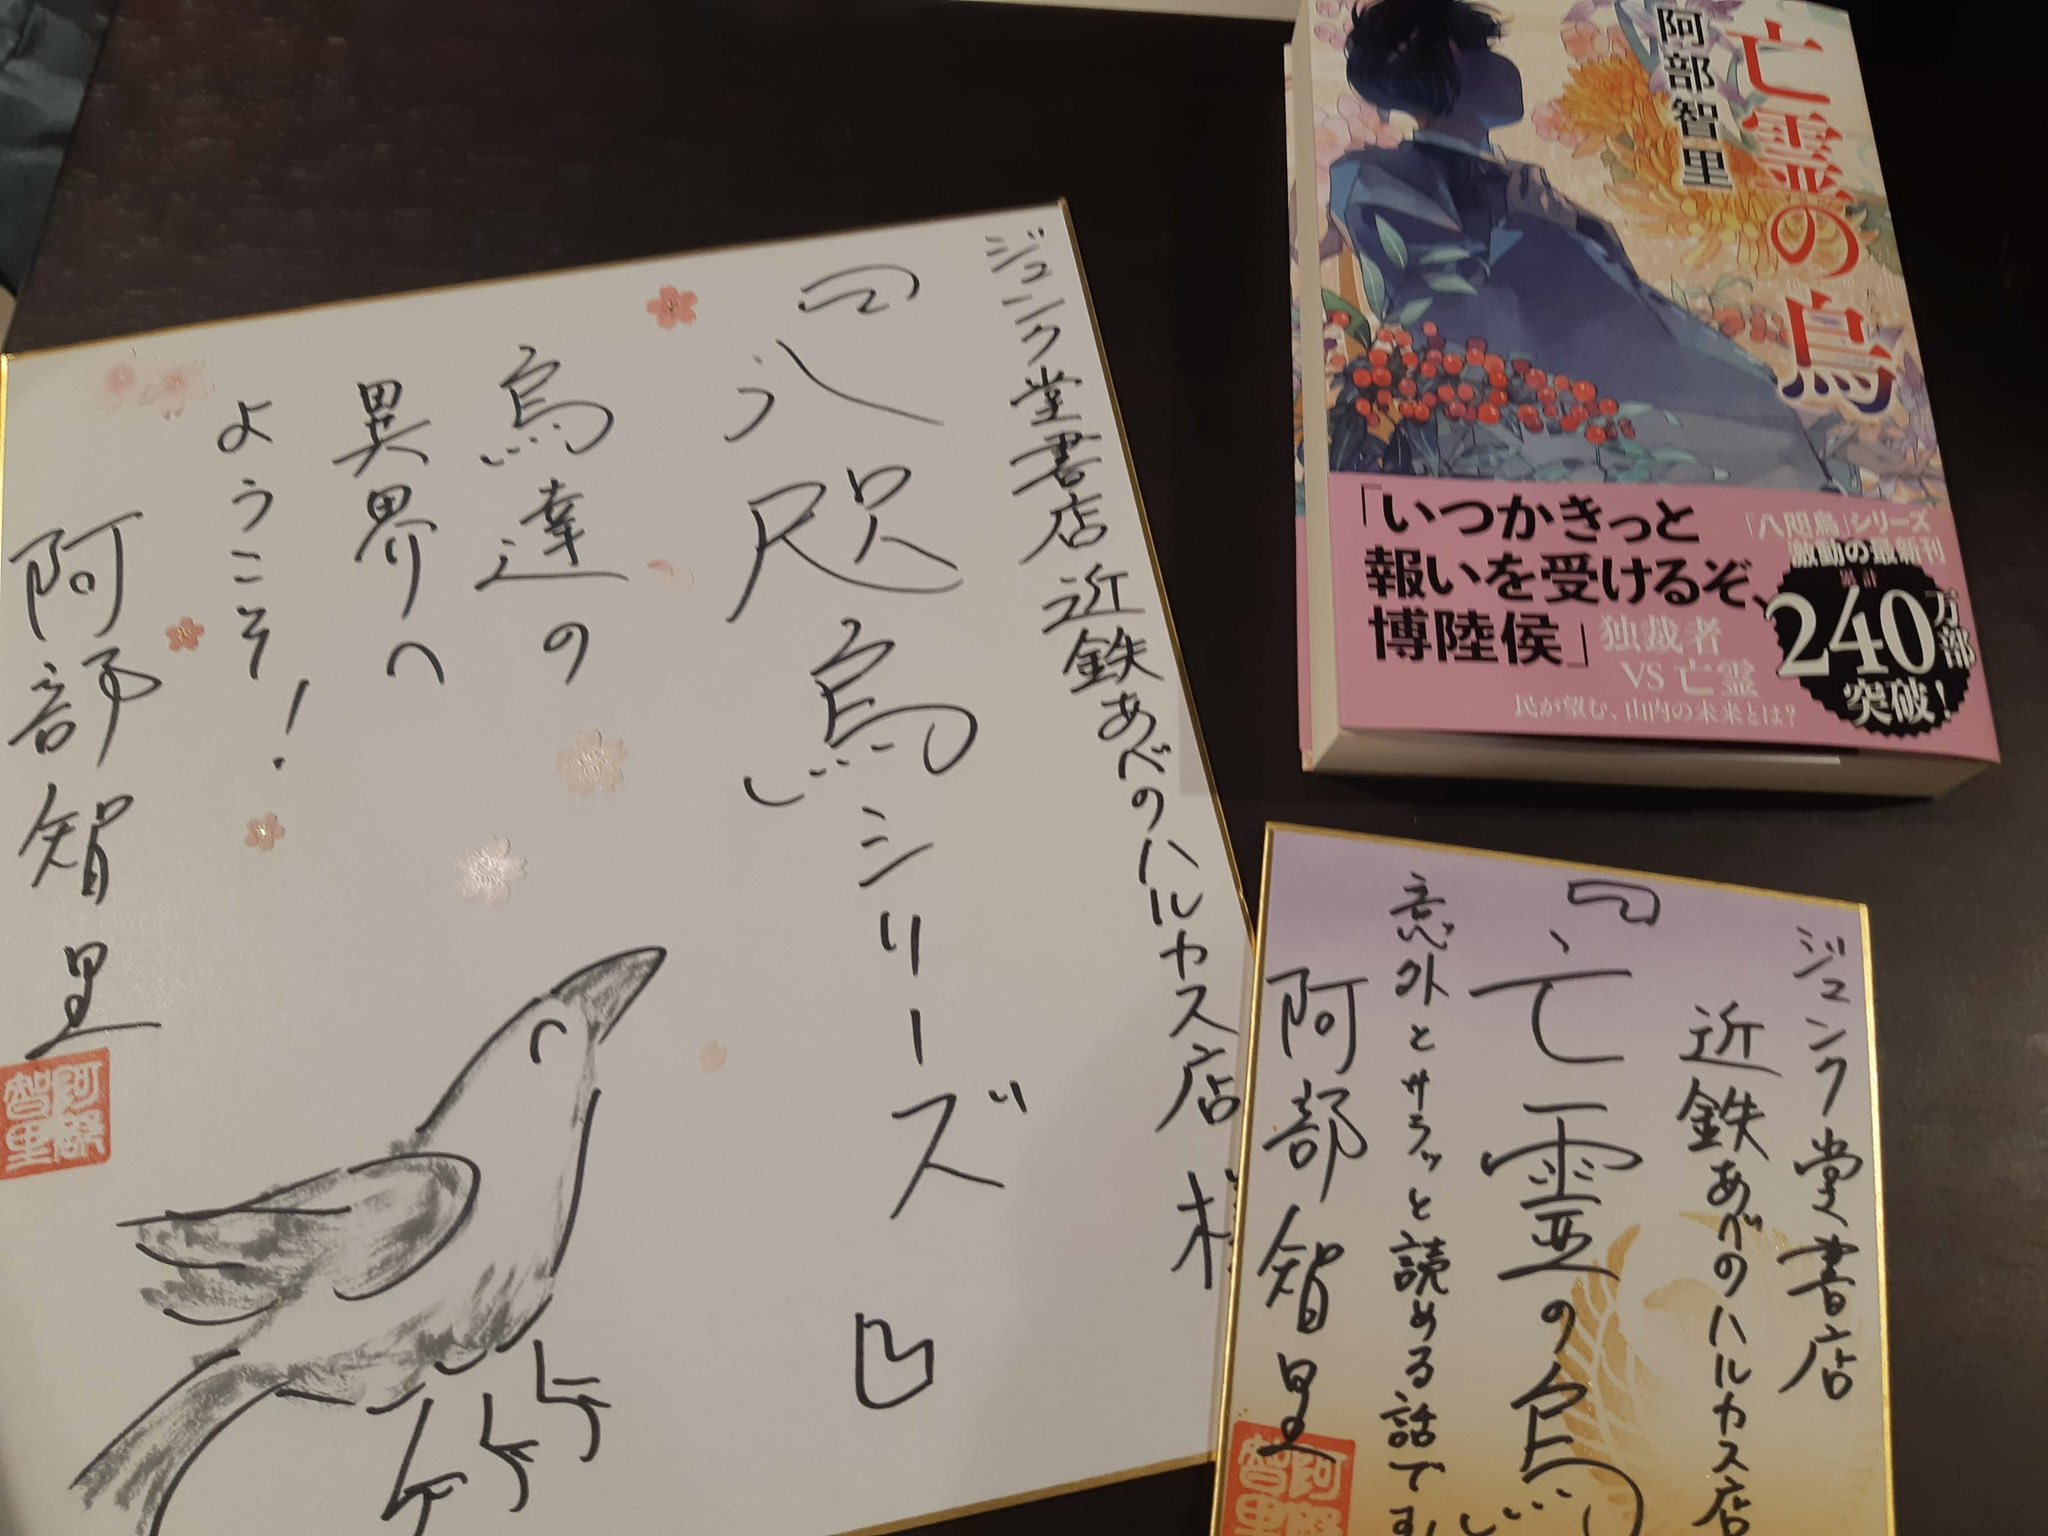 ジュンク堂書店 近鉄あべのハルカス店
『八咫烏シリーズ』
烏達の
異界へ
ようこそ！
阿部智里
阿部智里
亡霊の烏
阿部智里
「いつかきっと
報いを受けるぞ、
博陸侯」
独裁者
VS 亡霊
民が望む、山内の未来とは？
「八咫烏」シリーズ
激動の最新刊
累計
240万部
突破！
ジュンク堂書店
近鉄あべのハルカス店
『亡霊の烏
意外とサラッと読める話です
阿部智里
阿部智里